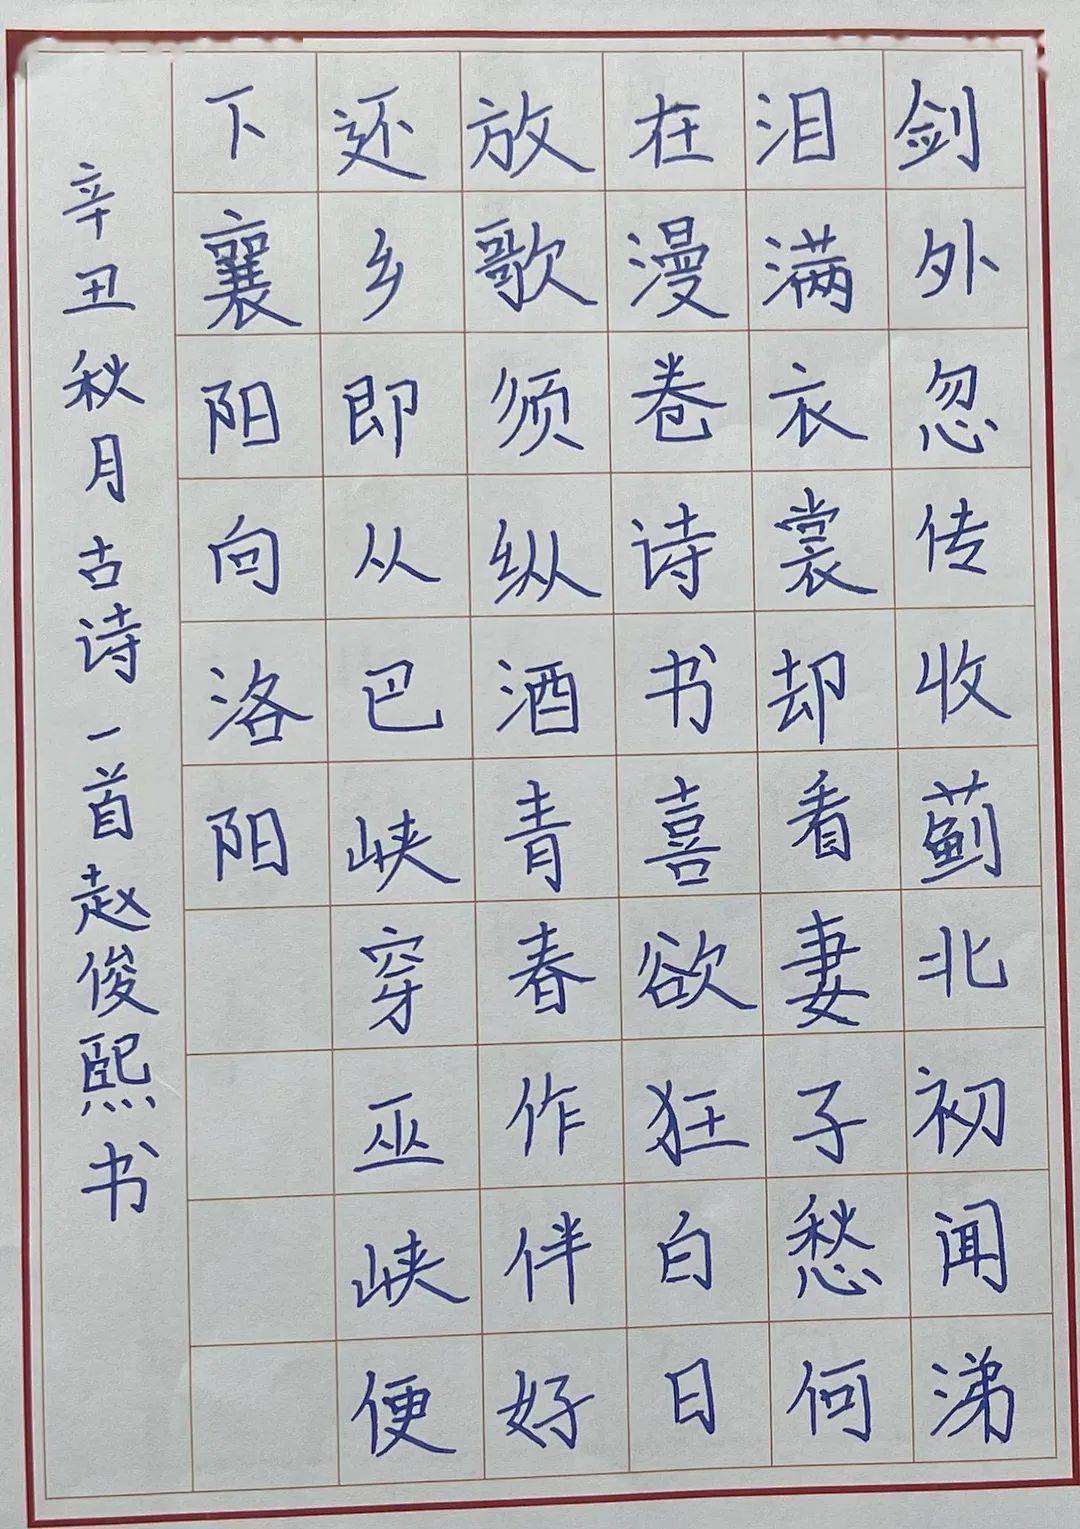 剑外忽传收蓟北初闻涕
泪满衣裳却看妻子愁何
在漫卷诗书喜欲狂白日
放歌须纵酒青春作伴好
还乡即从巴峡穿巫峡便
下襄阳向洛阳
辛丑秋月古诗一首赵俊熙书